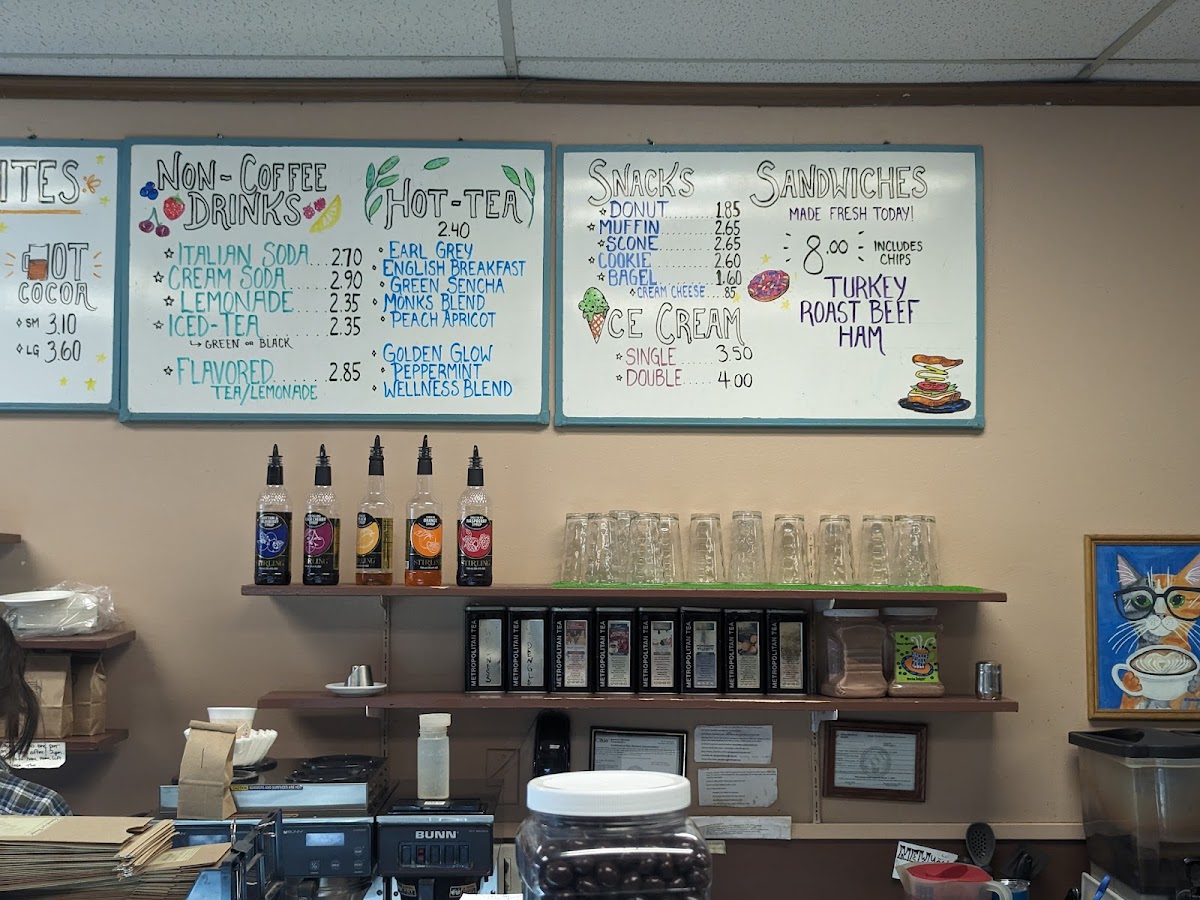 ITES
HOT
COCOA
SM 3.10
LG 3.60
NON-COFFEE
DRINKS
ITALIAN SODA 2.70
CREAM SODA 2.90
LEMONADE 2.35
ICED-TEA 2.35
GREEN OR BLACK
FLAVORED 2.85
TEA/LEMONADE
HOT-TEA
2.40
EARL GREY
ENGLISH BREAKFAST
GREEN SENCHA
MONKS BLEND
PEACH APRICOT
GOLDEN GLOW
PEPPERMINT
WELLNESS BLEND
SNACKS
DONUT 1.85
MUFFIN 2.65
SCONE 2.65
COOKIE 2.60
BAGEL 1.60
CREAM CHEESE .85
ICE CREAM
SINGLE 3.50
DOUBLE 4.00
SANDWICHES
MADE FRESH TODAY!
8.00 INCLUDES
CHIPS
TURKEY
ROAST BEEF
HAM
ORANGE
RASPBERRY
STIRLING
STIRLING
METROPOLITAN TEA
METROPOLITAN TEA
METROPOLITAN TEA
METROPOLITAN TEA
METROPOLITAN TEA
METROPOLITAN TEA
METROPOLITAN TEA
METROPOLITAN TEA
BUNN